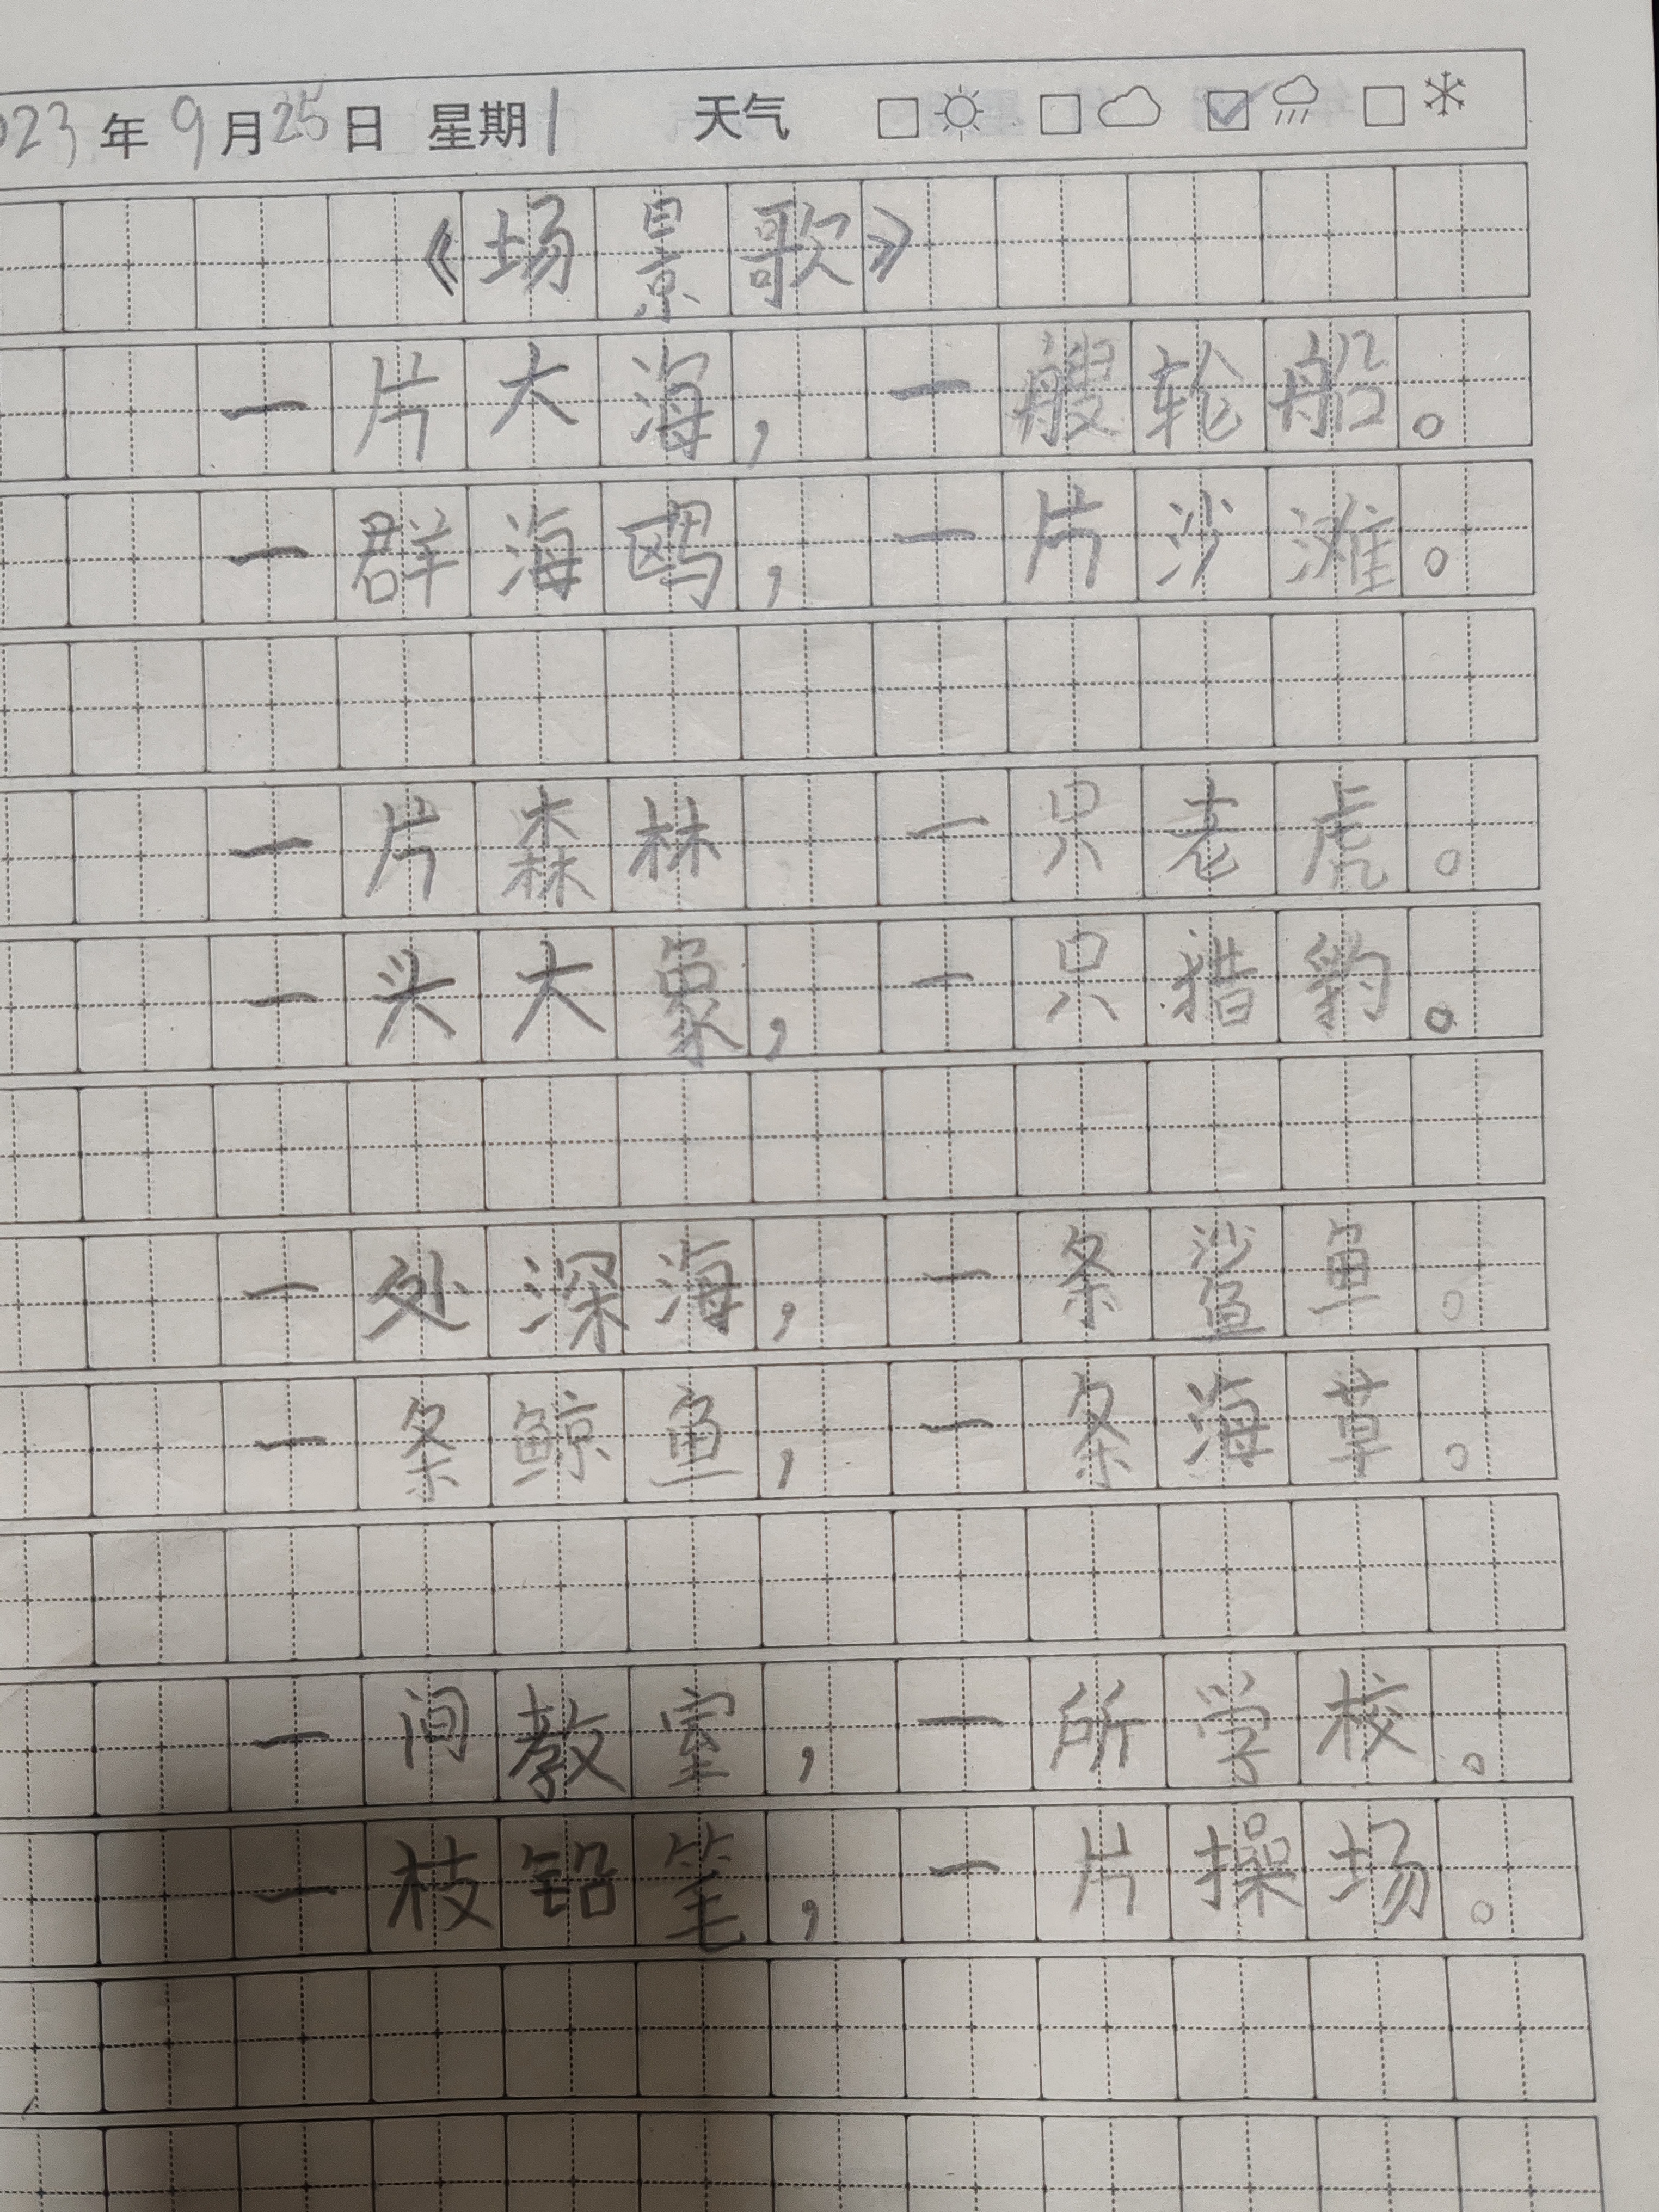 023年9月25日 星期1 天气
《场景歌》
一片大海,一艘轮船。
一群海鸥,一片沙滩。
一片森林 一只老虎。
一头大象,一只猎豹。
一处深海,一条鲨鱼。
一条鲸鱼,一条海草。
一间教室,一所学校。
一枝铅笔,一片操场。